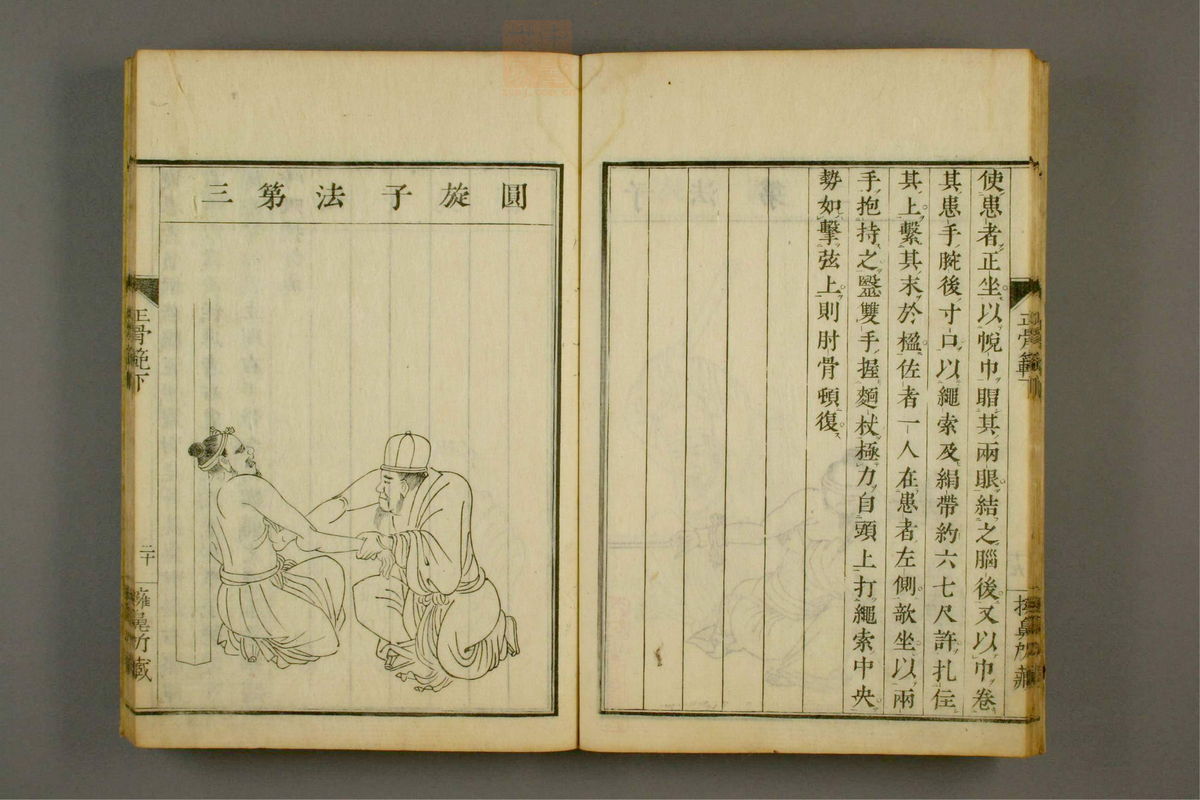 使患者正坐以帨巾眀其兩眼結之腦後又以巾卷
其患手腕後寸口以繩索及絹帶約六七尺許扎住
其上繫其末於楹佐者一人在患者左側欹坐以兩
手抱持之毉雙手握麵杖極力自頭上打繩索中央
勢如擊弦上則肘骨頓復
圓旋子法第三
正骨範下
二十